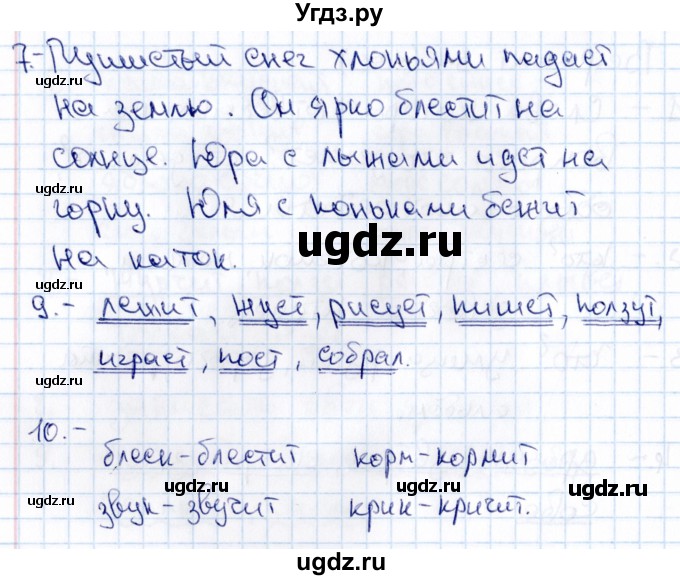 Угдз.ру
7.- Пушистый снег хлопьями падает
на землю. Он ярко блестит на
солнце. Юра с лыжами идет на
горку. Юля с коньками бежит
на каток.
ugdz.ru
9.- лежит, жует, рисует, пишет, ползут,
играет, поет, собрал.
10.-
блеск-блестит корм-кормит
звук-звучит крик-кричит.
ugdz.ru